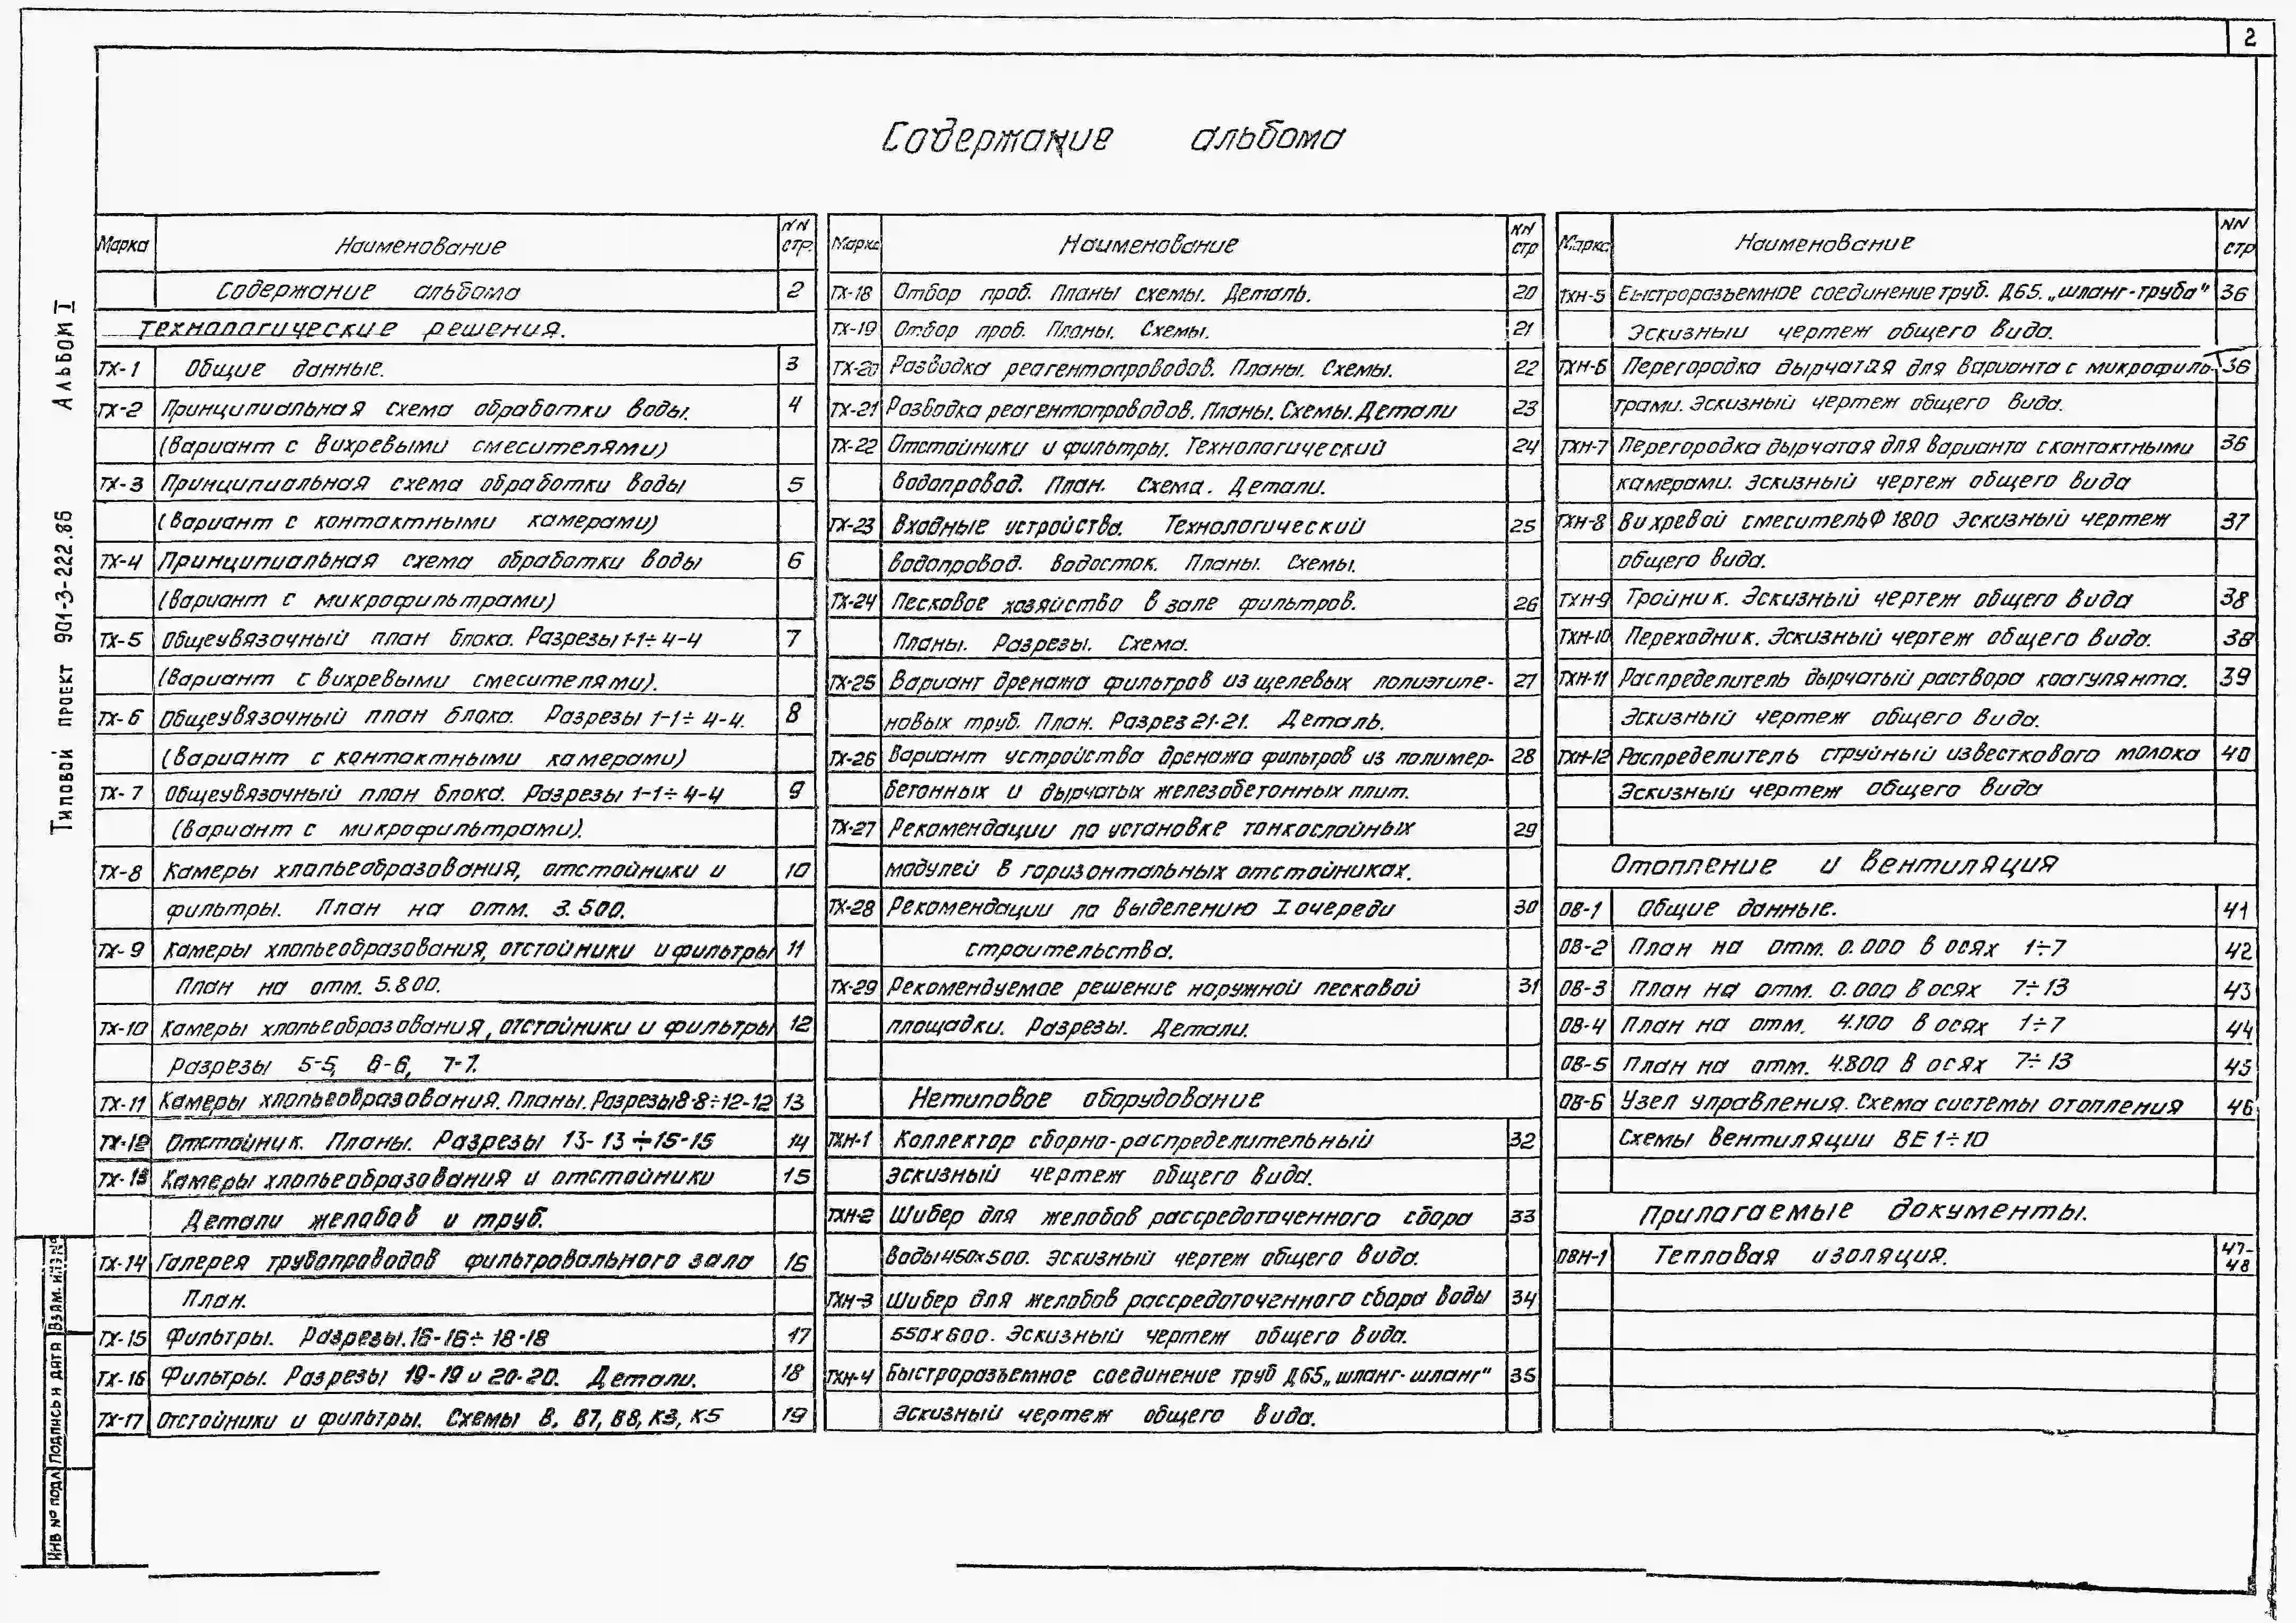 2
Содержание альбома
Марка Наименование NN стр.
Содержание альбома 2
Технологические решения.
ТХ-1 Общие данные. 3
ТХ-2 Принципиальная схема обработки воды. 4
(Вариант с вихревыми смесителями)
ТХ-3 Принципиальная схема обработки воды 5
(Вариант с контактными камерами)
ТХ-4 Принципиальная схема обработки воды 6
(Вариант с микрофильтрами)
ТХ-5 Общеувязочный план блока. Разрезы 1-1÷4-4 7
(Вариант с вихревыми смесителями).
ТХ-6 Общеувязочный план блока. Разрезы 1-1÷4-4. 8
(Вариант с контактными камерами)
ТХ-7 Общеувязочный план блока. Разрезы 1-1÷4-4 9
(Вариант с микрофильтрами).
ТХ-8 Камеры хлопьеобразования, отстойники и 10
фильтры. План на отм. 3.500.
ТХ-9 Камеры хлопьеобразования, отстойники и фильтры 11
План на отм. 5.800.
ТХ-10 Камеры хлопьеобразования, отстойники и фильтры 12
Разрезы 5-5, 6-6, 7-7.
ТХ-11 Камеры хлопьеобразования. Планы. Разрезы 8-8÷12-12 13
ТХ-12 Отстойник. Планы. Разрезы 13-13÷15-15 14
ТХ-13 Камеры хлопьеобразования и отстойники 15
Детали желобов и труб.
ТХ-14 Галерея трубопроводов фильтровального зала 16
План.
ТХ-15 Фильтры. Разрезы. 16-16÷18-18 17
ТХ-16 Фильтры. Разрезы 19-19 и 20-20. Детали. 18
ТХ-17 Отстойники и фильтры. Схемы В, В7, В8, К3, К5 19
Марка Наименование NN стр
ТХ-18 Отбор проб. Планы схемы. Деталь. 20
ТХ-19 Отбор проб. Планы. Схемы. 21
ТХ-20 Разводка реагентопроводов. Планы. Схемы. 22
ТХ-21 Разводка реагентопроводов. Планы. Схемы. Детали 23
ТХ-22 Отстойники и фильтры. Технологический 24
водопровод. План. Схема. Детали.
ТХ-23 Входные устройства. Технологический 25
водопровод. Водосток. Планы. Схемы.
ТХ-24 Песковое хозяйство в зале фильтров. 26
Планы. Разрезы. Схема.
ТХ-25 Вариант дренажа фильтров из щелевых полиэтиле- 27
новых труб. План. Разрез 21-21. Деталь.
ТХ-26 Вариант устройства дренажа фильтров из полимер- 28
бетонных и дырчатых железобетонных плит.
ТХ-27 Рекомендации по установке тонкослойных 29
модулей в горизонтальных отстойниках.
ТХ-28 Рекомендации по выделению I очереди 30
строительства.
ТХ-29 Рекомендуемое решение наружной песковой 31
площадки. Разрезы. Детали.
Нетиповое оборудование
ТХН-1 Коллектор сборно-распределительный 32
эскизный чертеж общего вида.
ТХН-2 Шибер для желобов рассредоточенного сбора 33
воды 450х500. Эскизный чертеж общего вида.
ТХН-3 Шибер для желобов рассредоточенного сбора воды 34
550х600. Эскизный чертеж общего вида.
ТХН-4 Быстроразъемное соединение труб Д65 „шланг-шланг" 35
Эскизный чертеж общего вида.
Марка Наименование NN стр
ТХН-5 Быстроразъемное соединение труб. Д65. „шланг-труба" 36
Эскизный чертеж общего вида.
ТХН-6 Перегородка дырчатая для варианта с микрофиль- 36
трами. Эскизный чертеж общего вида.
ТХН-7 Перегородка дырчатая для варианта с контактными 36
камерами. Эскизный чертеж общего вида
ТХН-8 Вихревой смеситель Ф 1800 Эскизный чертеж 37
общего вида.
ТХН-9 Тройник. Эскизный чертеж общего вида 38
ТХН-10 Переходник. Эскизный чертеж общего вида. 38
ТХН-11 Распределитель дырчатый раствора коагулянта. 39
Эскизный чертеж общего вида.
ТХН-12 Распределитель струйный известкового молока 40
Эскизный чертеж общего вида
Отопление и вентиляция
ОВ-1 Общие данные. 41
ОВ-2 План на отм. 0.000 в осях 1÷7 42
ОВ-3 План на отм. 0.000 в осях 7÷13 43
ОВ-4 План на отм. 4.100 в осях 1÷7 44
ОВ-5 План на отм. 4.800 в осях 7÷13 45
ОВ-6 Узел управления. Схема системы отопления 46
Схемы вентиляции ВЕ1÷10
Прилагаемые документы.
ОВН-1 Тепловая изоляция. 47-48
Типовой проект 901-3-222.86 Альбом I
Инв № подл Подпись и дата Взам. инв №